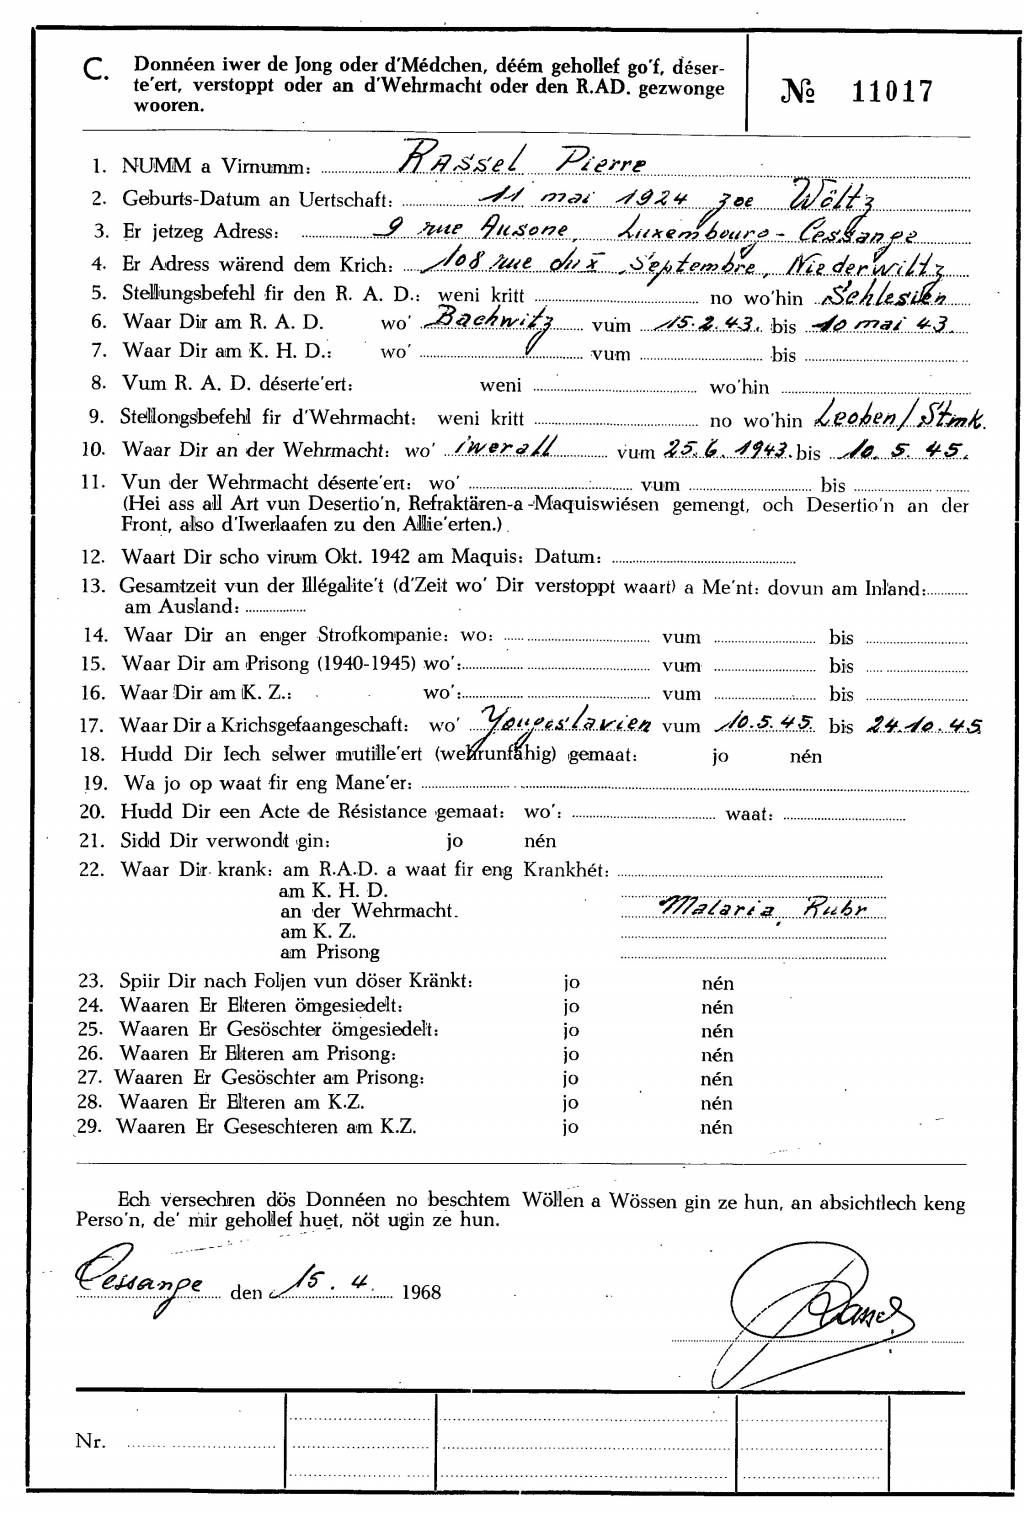 C. Donnéen iwer de Jong oder d'Médchen, déém gehollef go'f, déser-
te'ert, verstoppt oder an d'Wehrmacht oder den R.AD. gezwonge
wooren.
№ 11017
1. NUMM a Virnumm: Rassel Pierre
2. Geburts-Datum an Uertschaft: 11 mai 1924 zoe Wôltz
3. Er jetzeg Adress: 9 rue Ausone, Luxembourg-Cessange
4. Er Adress wärend dem Krich: 108 rue du X Septembre, Niederwiltz
5. Stellungsbefehl fir den R. A. D.: weni kritt no wo'hin Schlesien
6. Waar Dir am R. A. D. wo' Bachwitz vum 15.2.43. bis 10 mai 43.
7. Waar Dir am K. H. D.: wo' vum bis
8. Vum R. A. D. déserte'ert: weni wo'hin
9. Stellongsbefehl fir d'Wehrmacht: weni kritt no wo'hin Leoben/Stmk.
10. Waar Dir an der Wehrmacht: wo' iwerall vum 25.6.1943. bis 10. 5. 45.
11. Vun der Wehrmacht déserte'ert: wo' vum bis
(Hei ass all Art vun Desertio'n, Refraktären-a-Maquiswiésen gemengt, och Desertio'n an der
Front, also d'Iwerlaafen zu den Allie'erten.)
12. Waart Dir scho virum Okt. 1942 am Maquis: Datum:
13. Gesamtzeit vun der Illégalite't (d'Zeit wo' Dir verstoppt waart) a Me'nt: dovun am Inland:
am Ausland:
14. Waar Dir an enger Strofkompanie: wo: vum bis
15. Waar Dir am Prisong (1940-1945) wo': vum bis
16. Waar Dir am K. Z.: wo': vum bis
17. Waar Dir a Krichsgefaangeschaft: wo' Yougoslavien vum 10.5.45. bis 24.10.45.
18. Hudd Dir Iech selwer mutille'ert (wehrunfähig) gemaat: jo nén
19. Wa jo op waat fir eng Mane'er:
20. Hudd Dir een Acte de Résistance gemaat: wo': waat:
21. Sidd Dir verwondt gin: jo nén
22. Waar Dir krank: am R.A.D. a waat fir eng Krankhét:
am K. H. D.
an der Wehrmacht. Malaria, Ruhr
am K. Z.
am Prisong
23. Spiir Dir nach Foljen vun döser Kränkt: jo nén
24. Waaren Er Elteren ömgesiedelt: jo nén
25. Waaren Er Gesöschter ömgesiedelt: jo nén
26. Waaren Er Elteren am Prisong: jo nén
27. Waaren Er Gesöschter am Prisong: jo nén
28. Waaren Er Elteren am K.Z. jo nén
29. Waaren Er Geseschteren am K.Z. jo nén
Ech versechren dös Donnéen no beschtem Wöllen a Wössen gin ze hun, an absichtlech keng
Perso'n, de' mir gehollef huet, nöt ugin ze hun.
Cessange den 15. 4. 1968
Rassel
Nr.